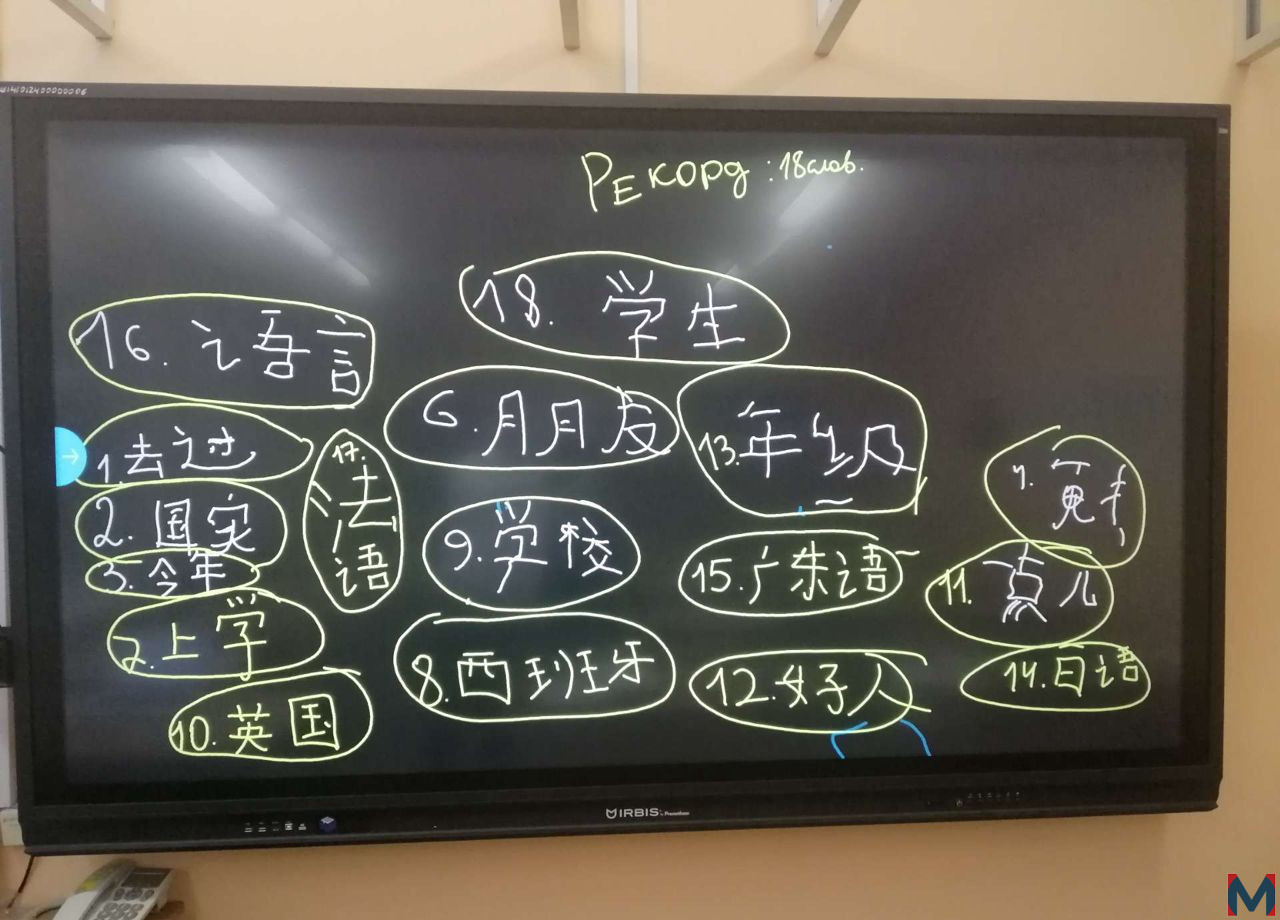 W1410124000000006
Рекорд : 18 слов.
18. 学生
16. 语言
6. 朋友
13. 年级
1. 去过
17. 法语
2. 国实
9. 学校
3. 今年
15. 广东语
11. 点儿
2. 上学
8. 西班牙
12. 好人
14. 日语
10. 英国
MIRBIS
M